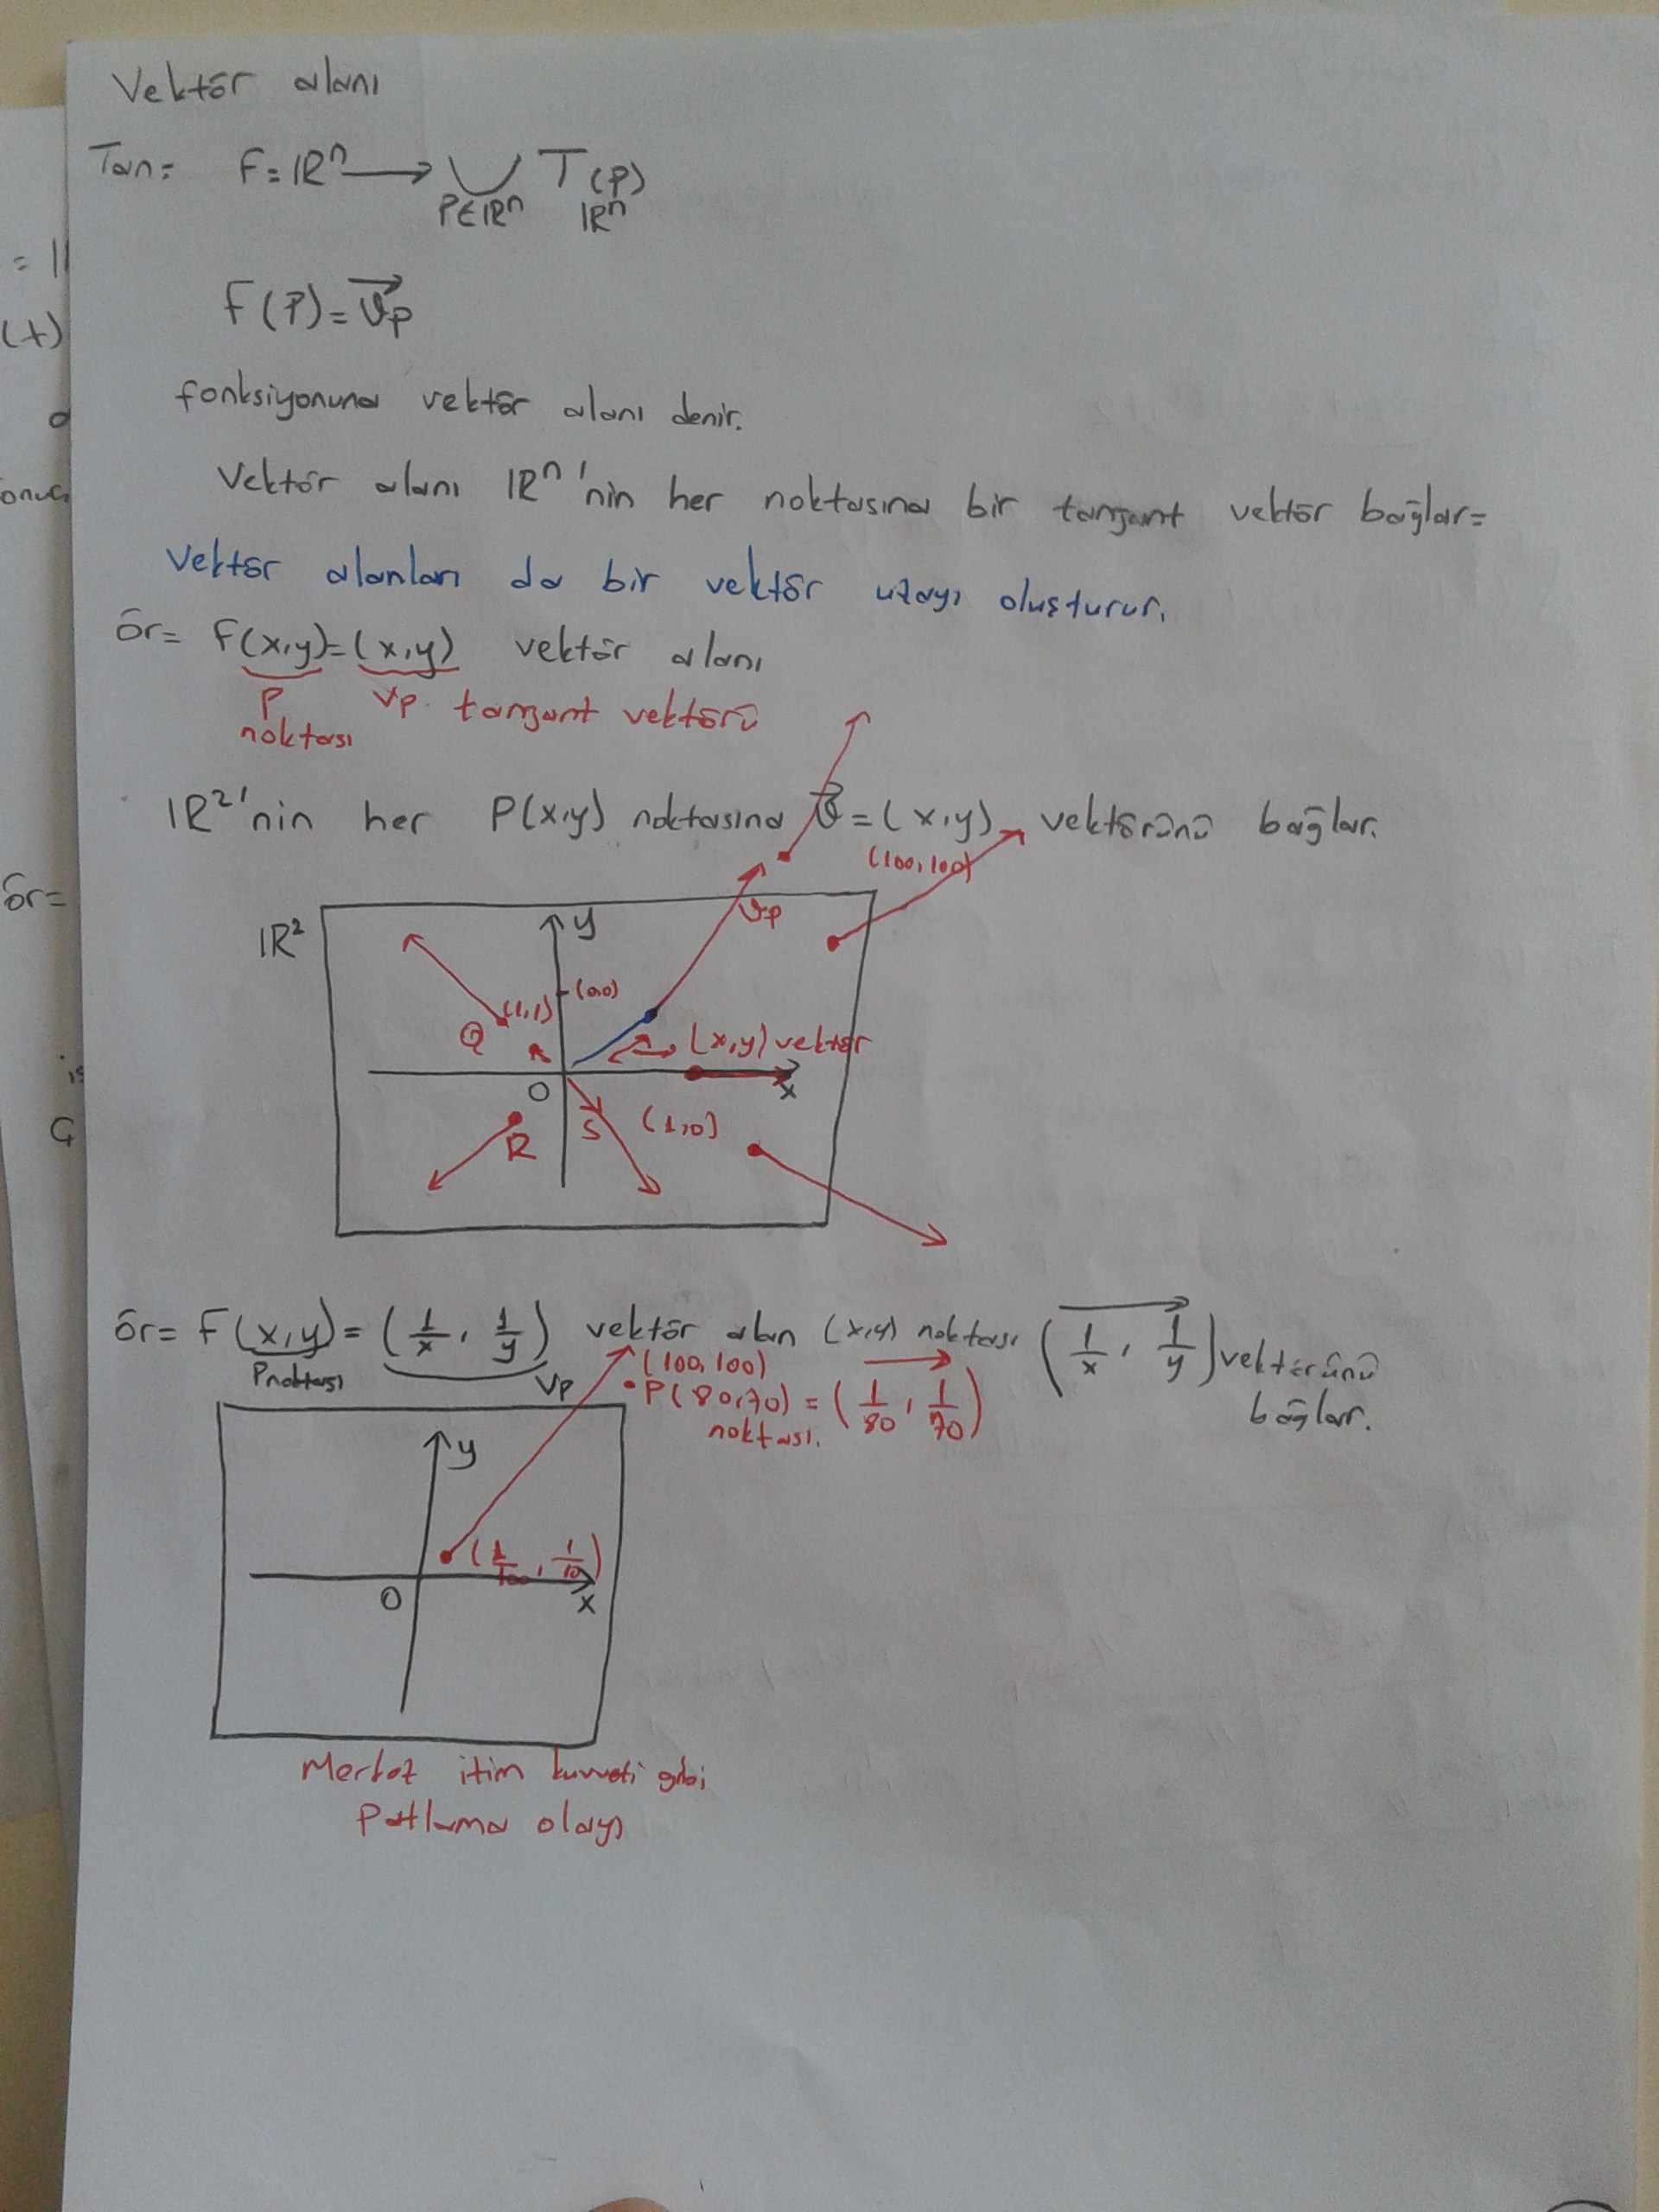 Vektör alanı
Tan= F: IRⁿ → ∪ T (P)
P∈IRⁿ IRⁿ
F(P) = v⃗p
fonksiyonuna vektör alanı denir.
Vektör alanı IRⁿ'nin her noktasına bir tanjant vektör bağlar=
Vektör alanları da bir vektör uzayı oluşturur.
ör= F(x,y)=(x,y) vektör alanı
P noktası
Vp tanjant vektörü
IR²'nin her P(x,y) noktasına v⃗=(x,y) vektörünü bağlar.
(100,100)
IR²
y
vp
(1,1)
(0,0)
Q
(x,y) vektör
O
x
R
S
(1,0)
ör= F(x,y)= (1/x, 1/y) vektör alan (x,y) noktası (1/x, 1/y) vektörünü
bağlar.
P noktası
Vp
(100,100)
P(80,70) = (1/80, 1/70)
noktası.
y
(1/100, 1/10)
O
x
Merkez itim kuvveti gibi
Patlama olayı
= 11
(x)
ör=
G